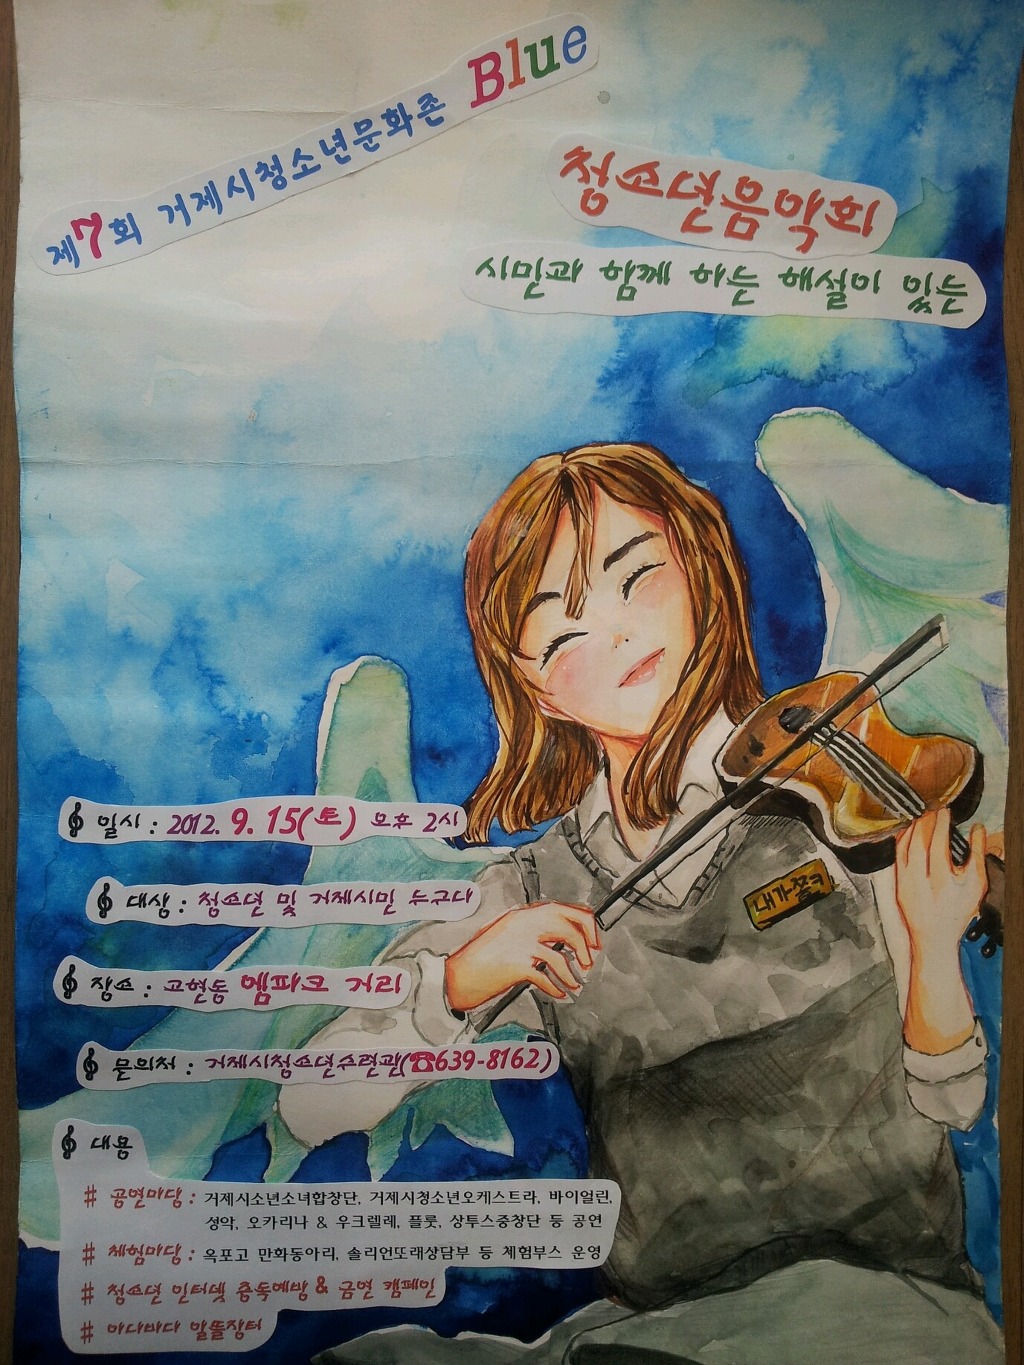 제7회 거제시청소년문화존 Blue
청소년음악회
시민과 함께 하는 해설이 있는
일시 : 2012. 9. 15(토) 오후 2시
대상 : 청소년 및 거제시민 누구나
장소 : 고현동 엠파크 거리
문의처 : 거제시청소년수련관(☎639-8162)
대용
# 공연마당 : 거제시소년소녀합창단, 거제시청소년오케스트라, 바이얼린,
성악, 오카리나 & 우크렐레, 플룻, 상투스중창단 등 공연
# 체험마당 : 옥포고 만화동아리, 솔리언또래상담부 등 체험부스 운영
# 청소년 인터넷 중독예방 & 금연 캠페인
# 아나바다 알뜰장터
내가쫑ㅋ